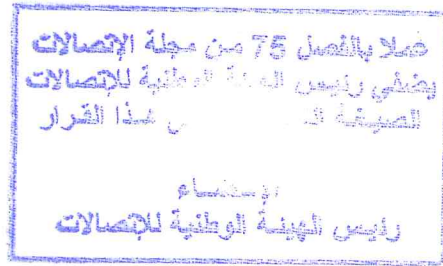 عملا بالفصل 75 من مجلة الإتصالات
يضفي رئيس الهيئة الوطنية للإتصالات
الصيغة هذا القرار
الإمضاء
رئيس الهيئة الوطنية للإتصالات